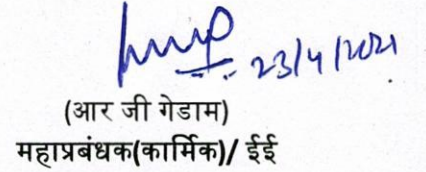 23/4/2021
(आर जी गेडाम)
महाप्रबंधक(कार्मिक)/ ईई